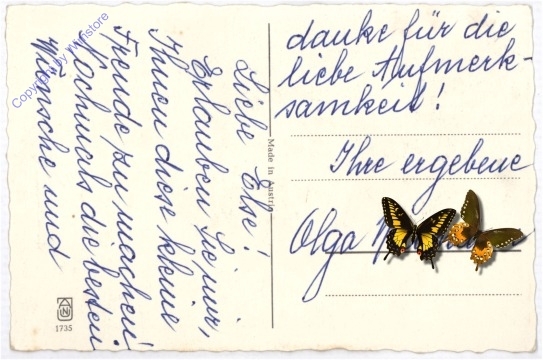 Liebe Else!
Erlauben Sie mir,
Ihnen diese kleine
Freude zu machen!
Nochmals die besten
Wünsche und
danke für die
liebe Aufmerk-
samkeit!
Ihre ergebene
Olga
Made in Austria
1735
Copyright by Wistore